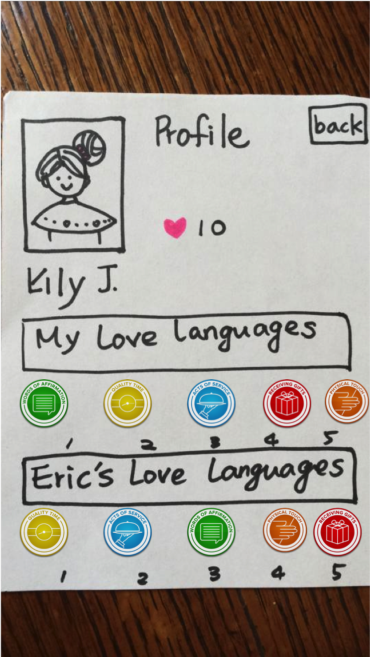 Profile
back
♥ 10
Kily J.
My Love Languages
WORDS OF AFFIRMATION QUALITY TIME ACTS OF SERVICE RECEIVING GIFTS PHYSICAL TOUCH
1 2 3 4 5
Eric's Love Languages
QUALITY TIME ACTS OF SERVICE WORDS OF AFFIRMATION PHYSICAL TOUCH RECEIVING GIFTS
1 2 3 4 5